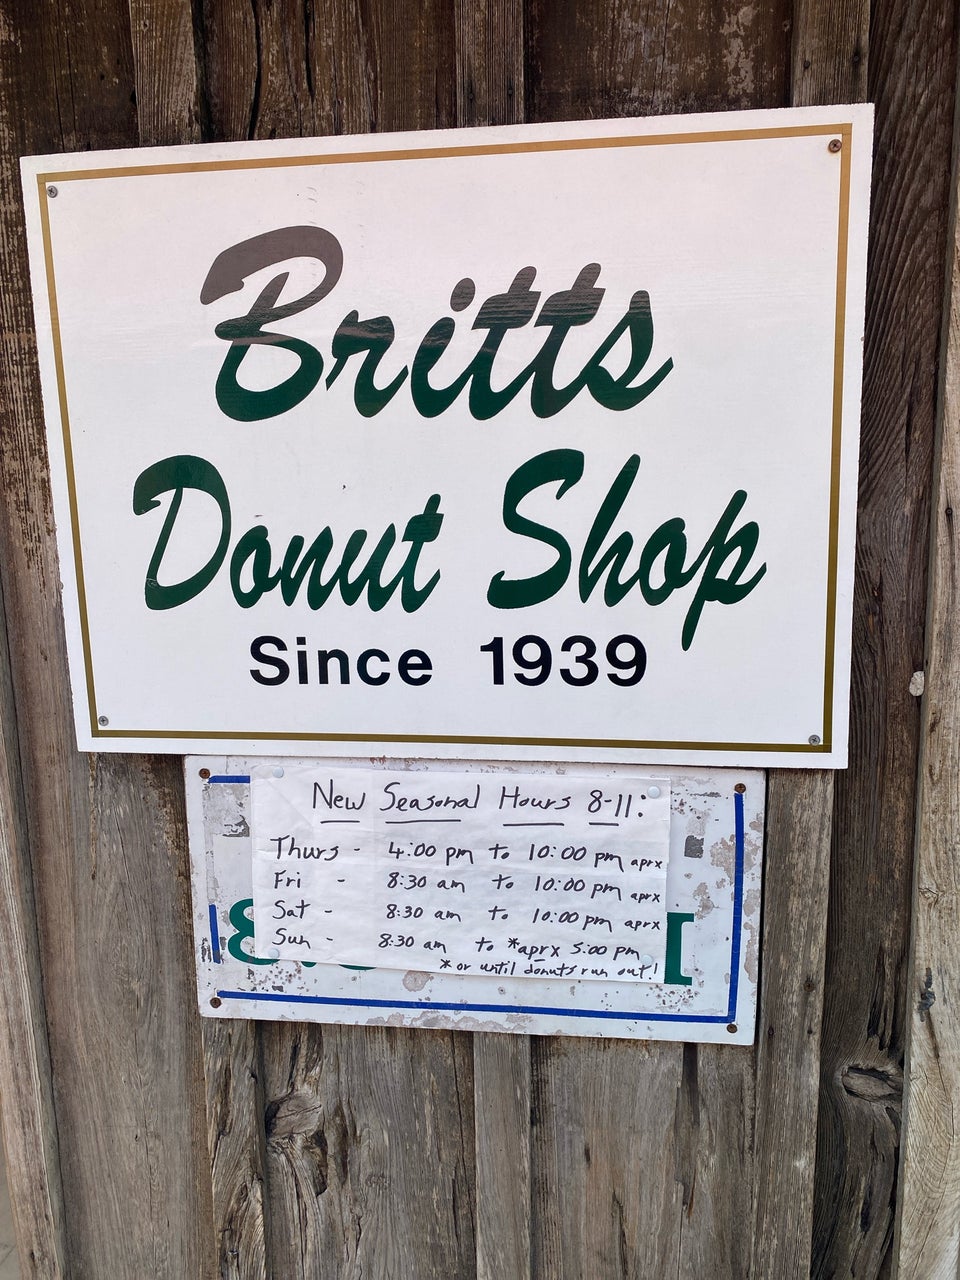 Britts
Donut Shop
Since 1939
New Seasonal Hours 8-11:
Thurs - 4:00 pm to 10:00 pm aprx
Fri - 8:30 am to 10:00 pm aprx
Sat - 8:30 am to 10:00 pm aprx
Sun - 8:30 am to *aprx 5:00 pm
* or until donuts run out!